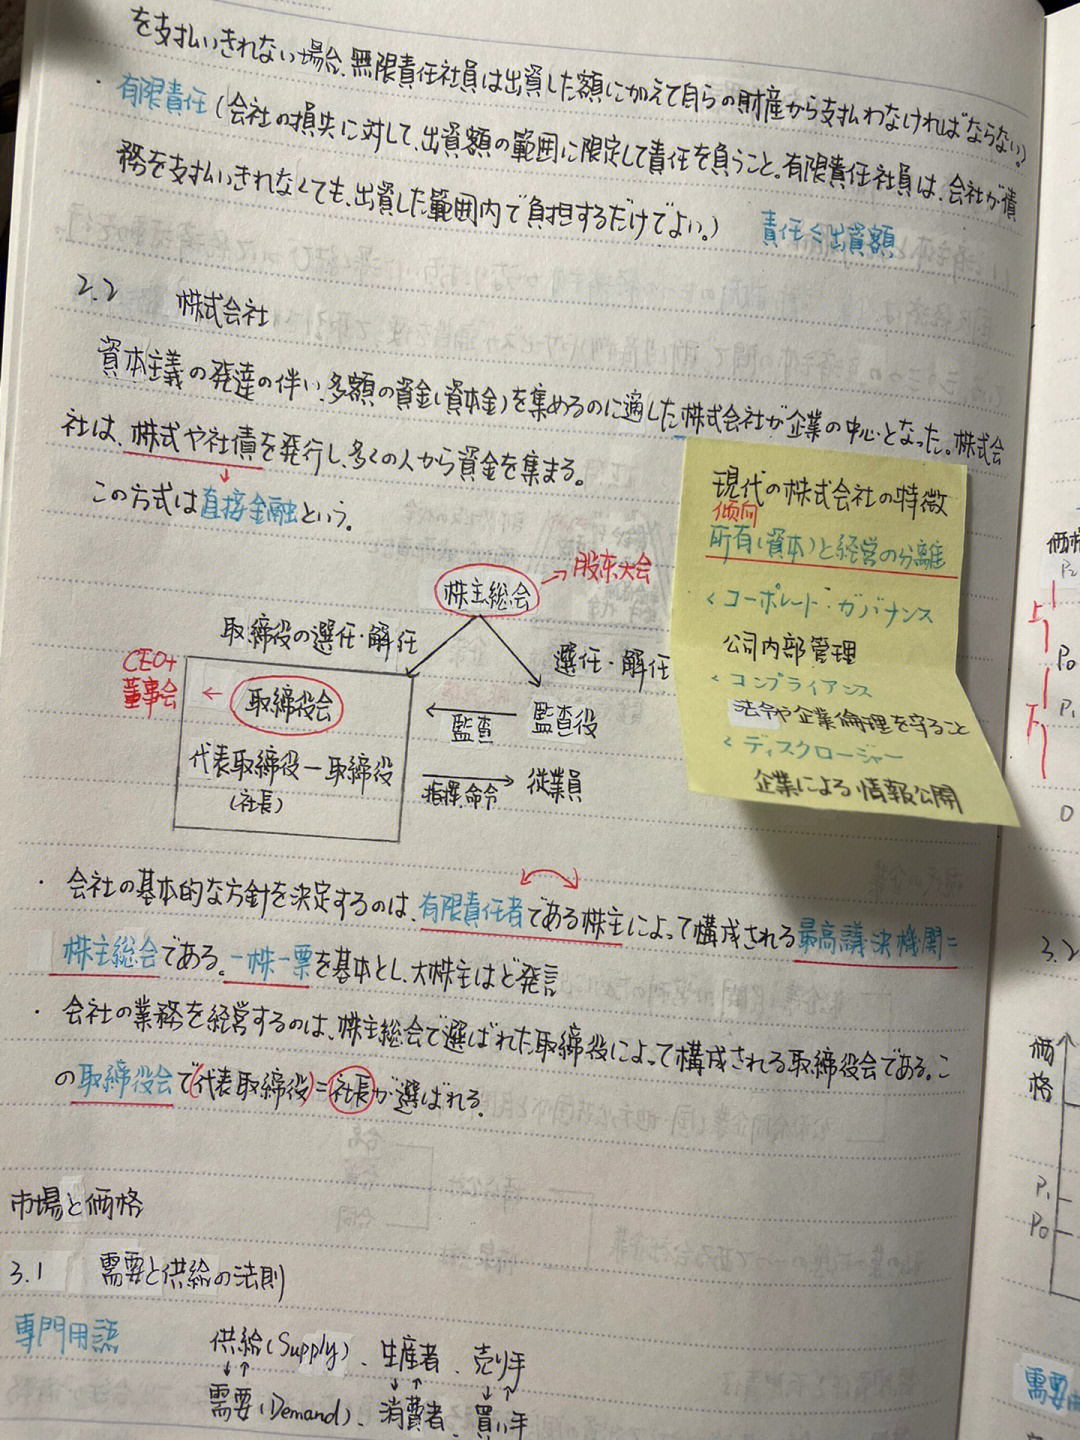 を支払いきれない場合、無限責任社員は出資した額に加えて自らの財産から支払わなければならない。)
・有限責任(会社の損失に対して、出資額の範囲に限定して責任を負うこと。有限責任社員は、会社が債
務を支払いきれなくても、出資した範囲内で負担するだけでよい。) 責任≦出資額
2.2 株式会社
資本主義の発達の伴い、多額の資金(資本金)を集めるのに適した株式会社が企業の中心となった。株式会
社は、株式や社債を発行し、多くの人から資金を集まる。
この方式は直接金融という。
現代の株式会社の特徴
倾向
所有(資本)と経営の分離
< コーポレート・ガバナンス
公司内部管理
< コンプライアンス
法令や企業倫理を守ること
< ディスクロージャー
企業による情報公開
株主総会 → 股东大会
取締役の選任・解任
選任・解任
CEO+
董事会
← 取締役会
監査
監査役
代表取締役ー取締役
(社長)
指揮命令
従業員
・会社の基本的な方針を決定するのは、有限責任者である株主によって構成される最高議決機関=
株主総会である。一株一票を基本とし、大株主ほど発言
・会社の業務を経営するのは、株主総会で選ばれた取締役によって構成される取締役会である。こ
の取締役会で(代表取締役)=社長が選ばれる。
市場と価格
3.1 需要と供給の法則
専門用語
供給(Supply)、生産者、売り手
↓↑ ↓↑ ↓↑
需要(Demand)、消費者、買い手
価格
P₂
P₀
P₁
0
3.2
価
格
P₁
P₀
需要